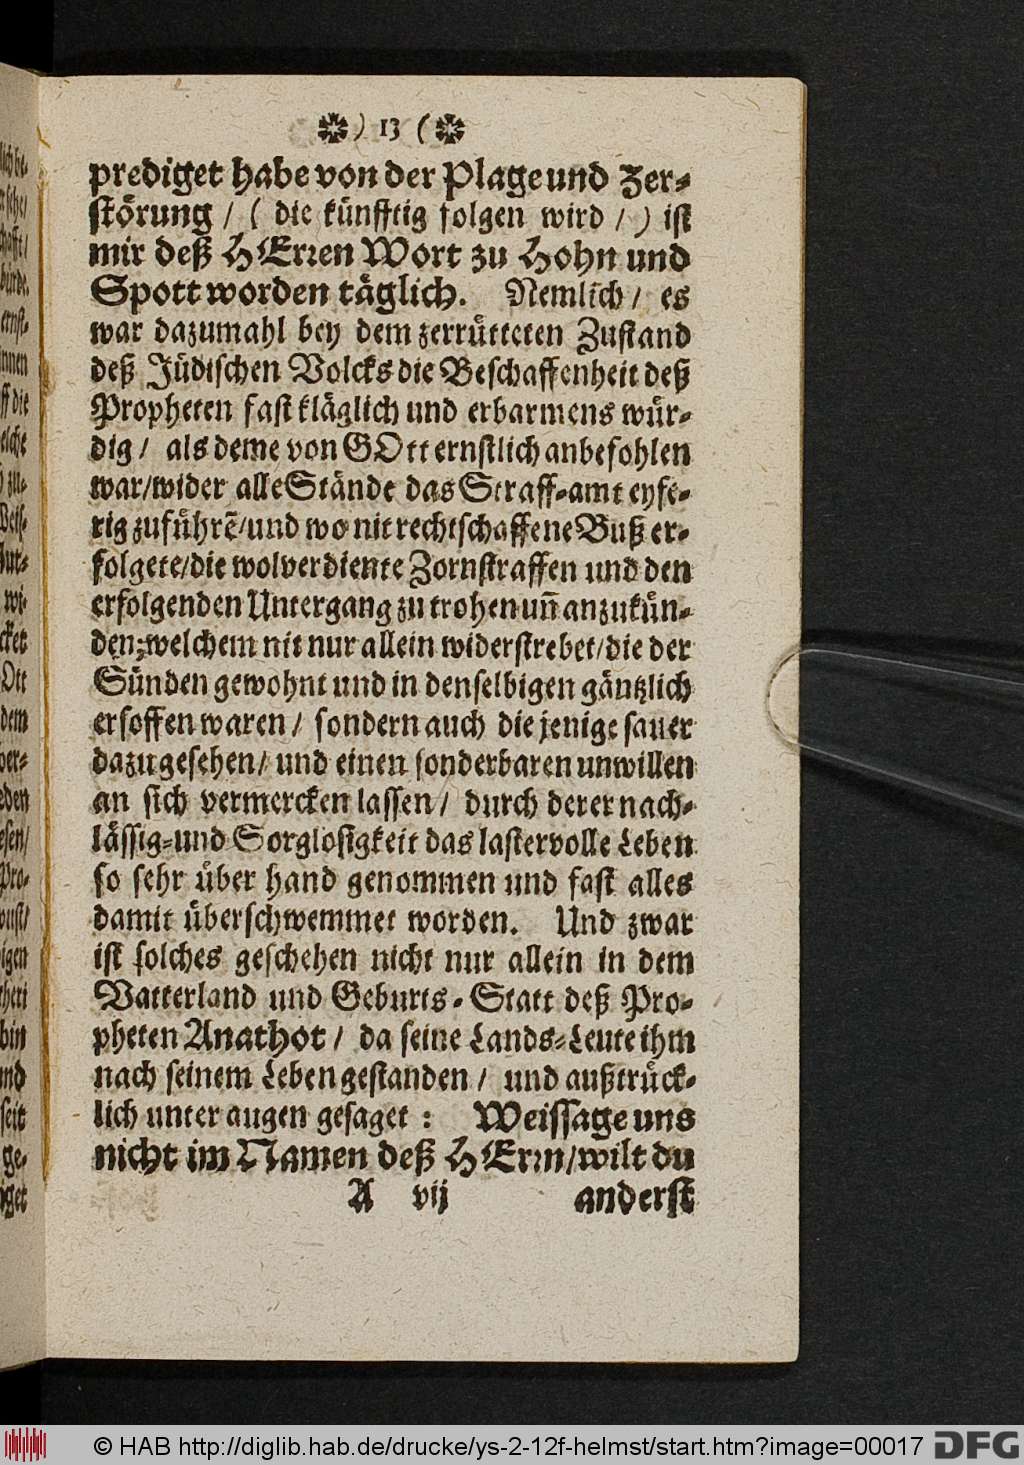 ) 13 (
prediget habe von der Plage und Zer-
störung / ( die künfftig folgen wird / ) ist
mir deß HErren Wort zu Hohn und
Spott worden täglich. Nemlich / es
war dazumahl bey dem zerrütteten Zustand
deß Jüdischen Volcks die Beschaffenheit deß
Propheten fast kläglich und erbarmens wür-
dig / als deme von GOtt ernstlich anbefohlen
war/wider alle Stände das Straff-amt eyfe-
rig zuführē/und wo nit rechtschaffene Buß er-
folgete/die wolverdiente Zornstraffen und den
erfolgenden Untergang zu trohen uñ anzukün-
den;welchem nit nur allein widerstrebet/die der
Sünden gewohnt und in denselbigen gäntzlich
ersoffen waren / sondern auch die jenige sauer
dazu gesehen/ und einen sonderbaren unwillen
an sich vermercken lassen / durch derer nach-
lässig-und Sorglosigkeit das lastervolle Leben
so sehr über hand genommen und fast alles
damit überschwemmet worden. Und zwar
ist solches geschehen nicht nur allein in dem
Vatterland und Geburts-Statt deß Pro-
pheten Anathot / da seine Lands-Leute ihm
nach seinem Leben gestanden / und außtrück-
lich unter augen gesaget : Weissage uns
nicht im Namen deß HErrn/wilt du
A vij anderst
© HAB http://diglib.hab.de/drucke/ys-2-12f-helmst/start.htm?image=00017 DFG